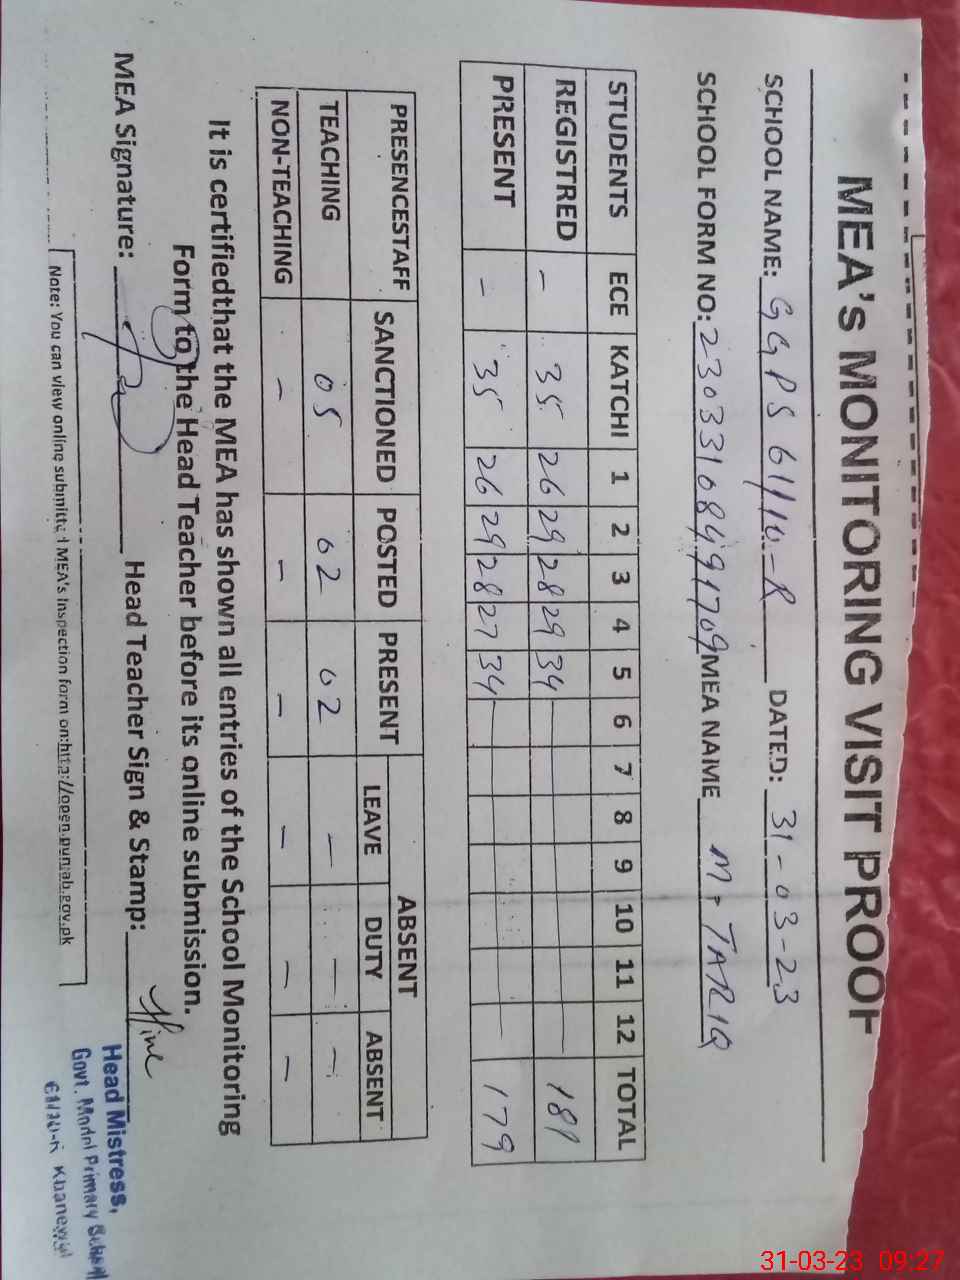 MEA's MONITORING VISIT PROOF
SCHOOL NAME: GGPS 61/10-R DATED: 31-03-23
SCHOOL FORM NO: 230331084991709 MEA NAME M. TARIQ
STUDENTS ECE KATCHI 1 2 3 4 5 6 7 8 9 10 11 12 TOTAL
REGISTRED - 35 26 29 28 29 34 181
PRESENT - 35 26 29 28 27 34 179
PRESENCESTAFF SANCTIONED POSTED PRESENT ABSENT
LEAVE DUTY ABSENT
TEACHING 05 02 02 - - -
NON-TEACHING - - - - - -
It is certifiedthat the MEA has shown all entries of the School Monitoring
Form to the Head Teacher before its online submission.
MEA Signature: Head Teacher Sign & Stamp:
Head Mistress,
Govt. Model Primary School
61/10-R Khanewal
Note: You can view online submitted MEA's Inspection form on:http://open.punjab.gov.pk
31-03-23 09:27